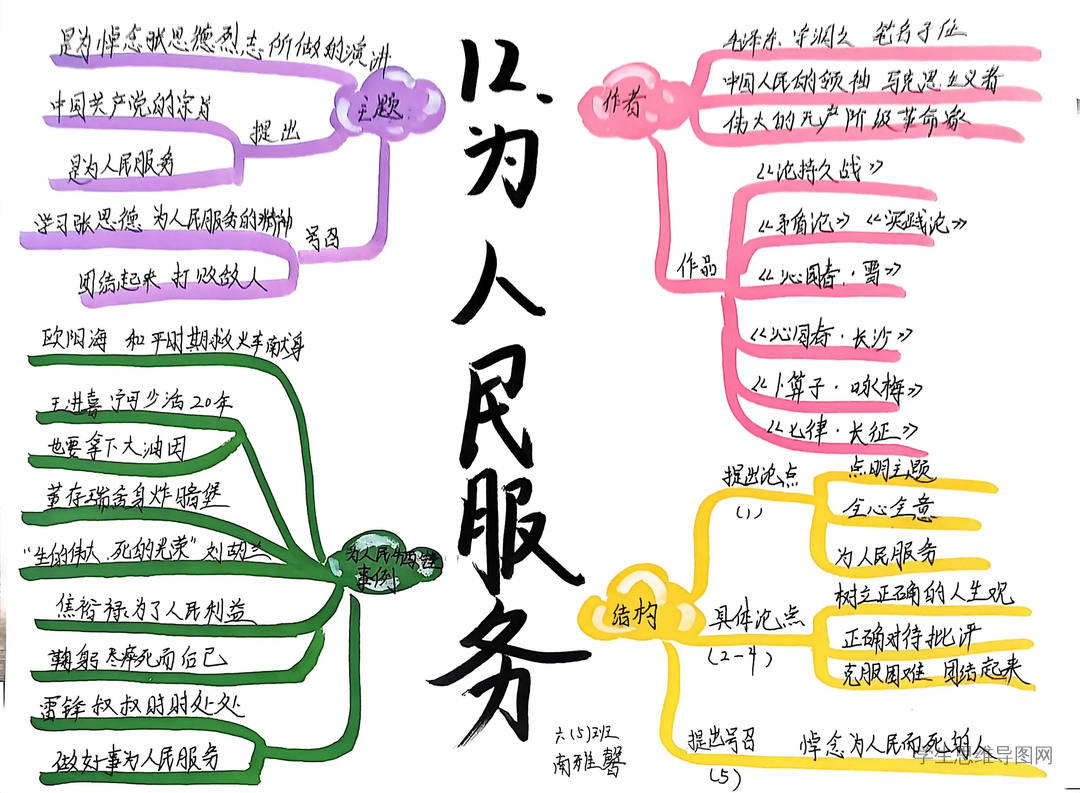 12、为人民服务
主题
是为悼念张思德烈志所做的演讲
提出
中国共产党的宗旨
是为人民服务
号召
学习张思德 为人民服务的精神
团结起来 打败敌人
为人民牺牲
事例
欧阳海 和平时期救火车献身
王进喜宁可少活20年
也要拿下大油田
董存瑞舍身炸碉堡
"生的伟大、死的光荣"刘胡兰
焦裕禄为了人民利益
鞠躬尽瘁死而后已
雷锋叔叔时时处处
做好事为人民服务
作者
毛泽东、字润之 笔名子任
中国人民的领袖 马克思主义者
伟大的无产阶级革命家
作品
《论持久战》
《矛盾论》《实践论》
《沁园春·雪》
《沁园春·长沙》
《卜算子·咏梅》
《七律·长征》
结构
提出论点
(1)
点明主题
全心全意
为人民服务
具体论点
(2-4)
树立正确的人生观
正确对待批评
克服困难 团结起来
提出号召
(5)
悼念为人民而死的人
六(5)班
南雅馨
学生思维导图网